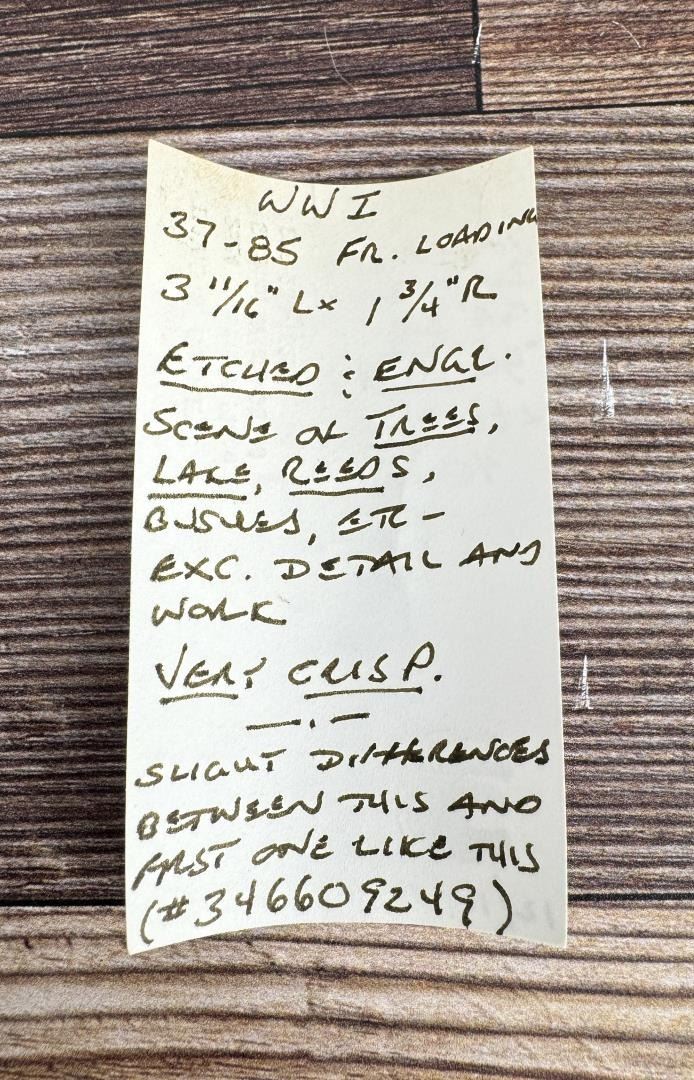 WWI
37-85 FR. LOADING
3 11/16" L x 1 3/4" R
ETCHED & ENGR.
SCENE OF TREES,
LAKE, REEDS,
BUSHES, ETC -
EXC. DETAIL AND
WORK
VERY CRISP.
— . —
SLIGHT DIFFERENCES
BETWEEN THIS AND
FIRST ONE LIKE THIS
(#346609249)